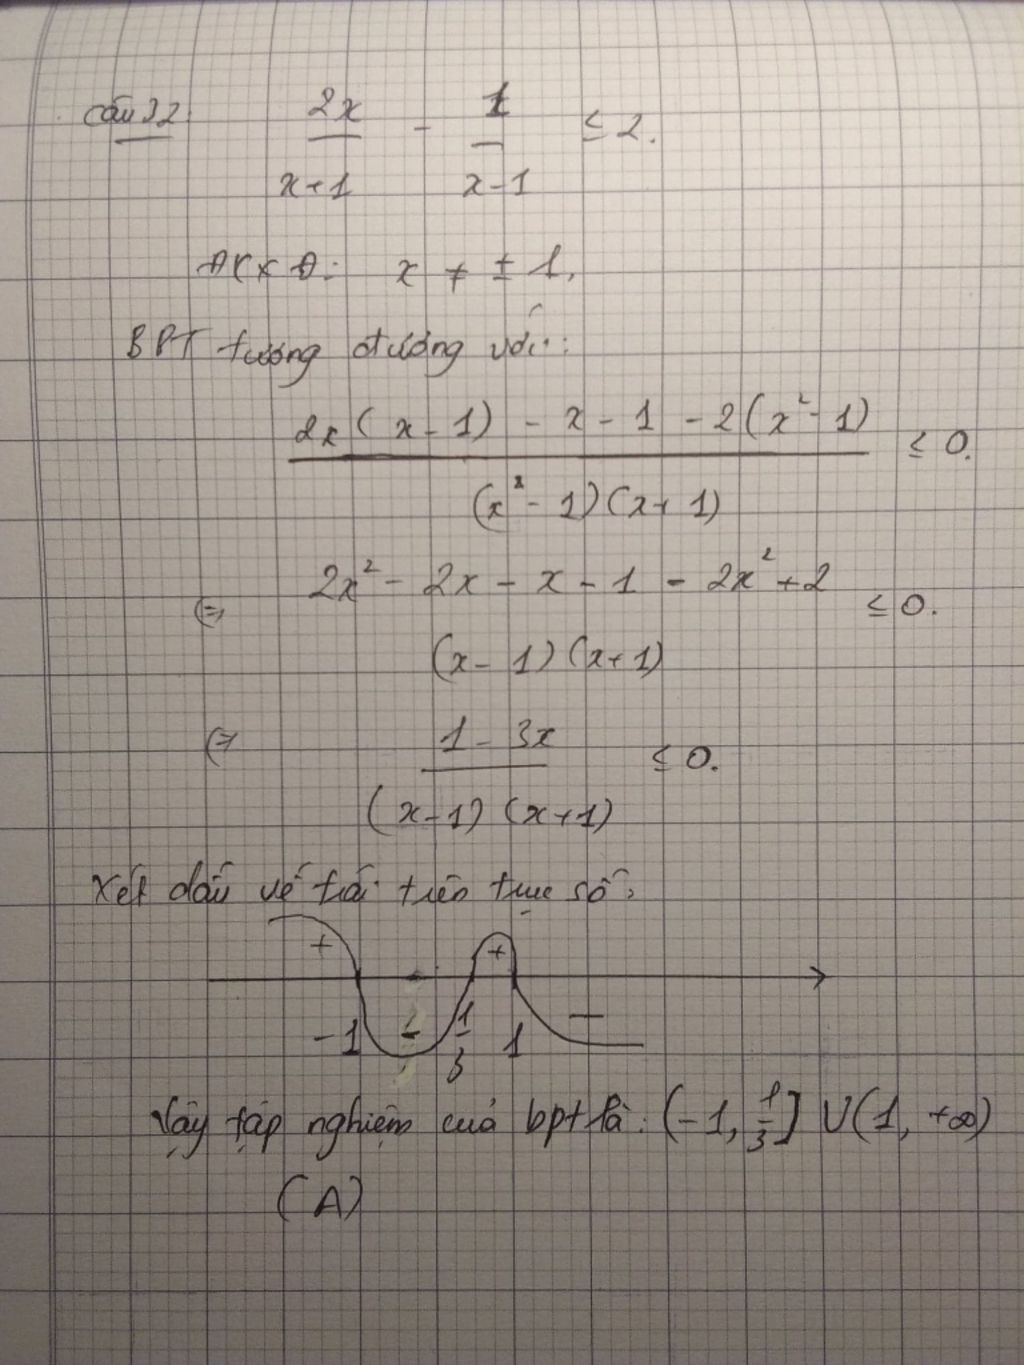 Câu 32: 2x/(x+1) - 1/(x-1) ≤ 2.
ĐKXĐ: x ≠ ±1.
BPT tương đương với:
(2x(x-1) - x - 1 - 2(x²-1))/((x²-1)(x+1)) ≤ 0.
⇔ (2x² - 2x - x - 1 - 2x² + 2)/((x-1)(x+1)) ≤ 0.
⇔ (1 - 3x)/((x-1)(x+1)) ≤ 0.
Xét dấu vế trái trên trục số:
+ +
-1 - 1/3 1 -
Vậy tập nghiệm của bpt là: (-1, 1/3] ∪ (1, +∞)
(A)